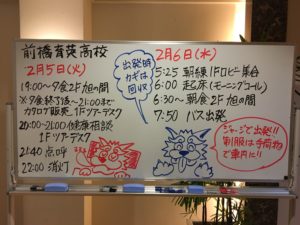 前橋育英高校
2月5日(火)
19:00～夕食2F旭の間
※夕食終了後～21:00まで
カタログ販売 1Fツアーデスク
20:00～21:00 健康相談
1Fツアーデスク
21:40 点呼
22:00 消灯
出発時
カギは
回収
2月6日(水)
5:25 朝練 1Fロビー集合
6:00 起床(モーニングコール)
6:30～ 朝食2F 旭の間
7:50 バス出発
ジャージで出発!!
制服は手荷物
で車内に!!